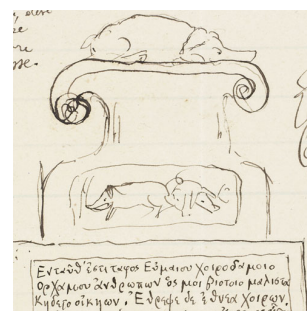 Ενταῦθ' ἐστι ταφος Εὐμαιου Χοιροδαμοιο
Ορχαμου ἀνθρωπων ὁς μοι βιοτοιο μαλιστα
Κηδετο οἰκηων. Ἐτρεφε δε ἐθνεα χοιρων.